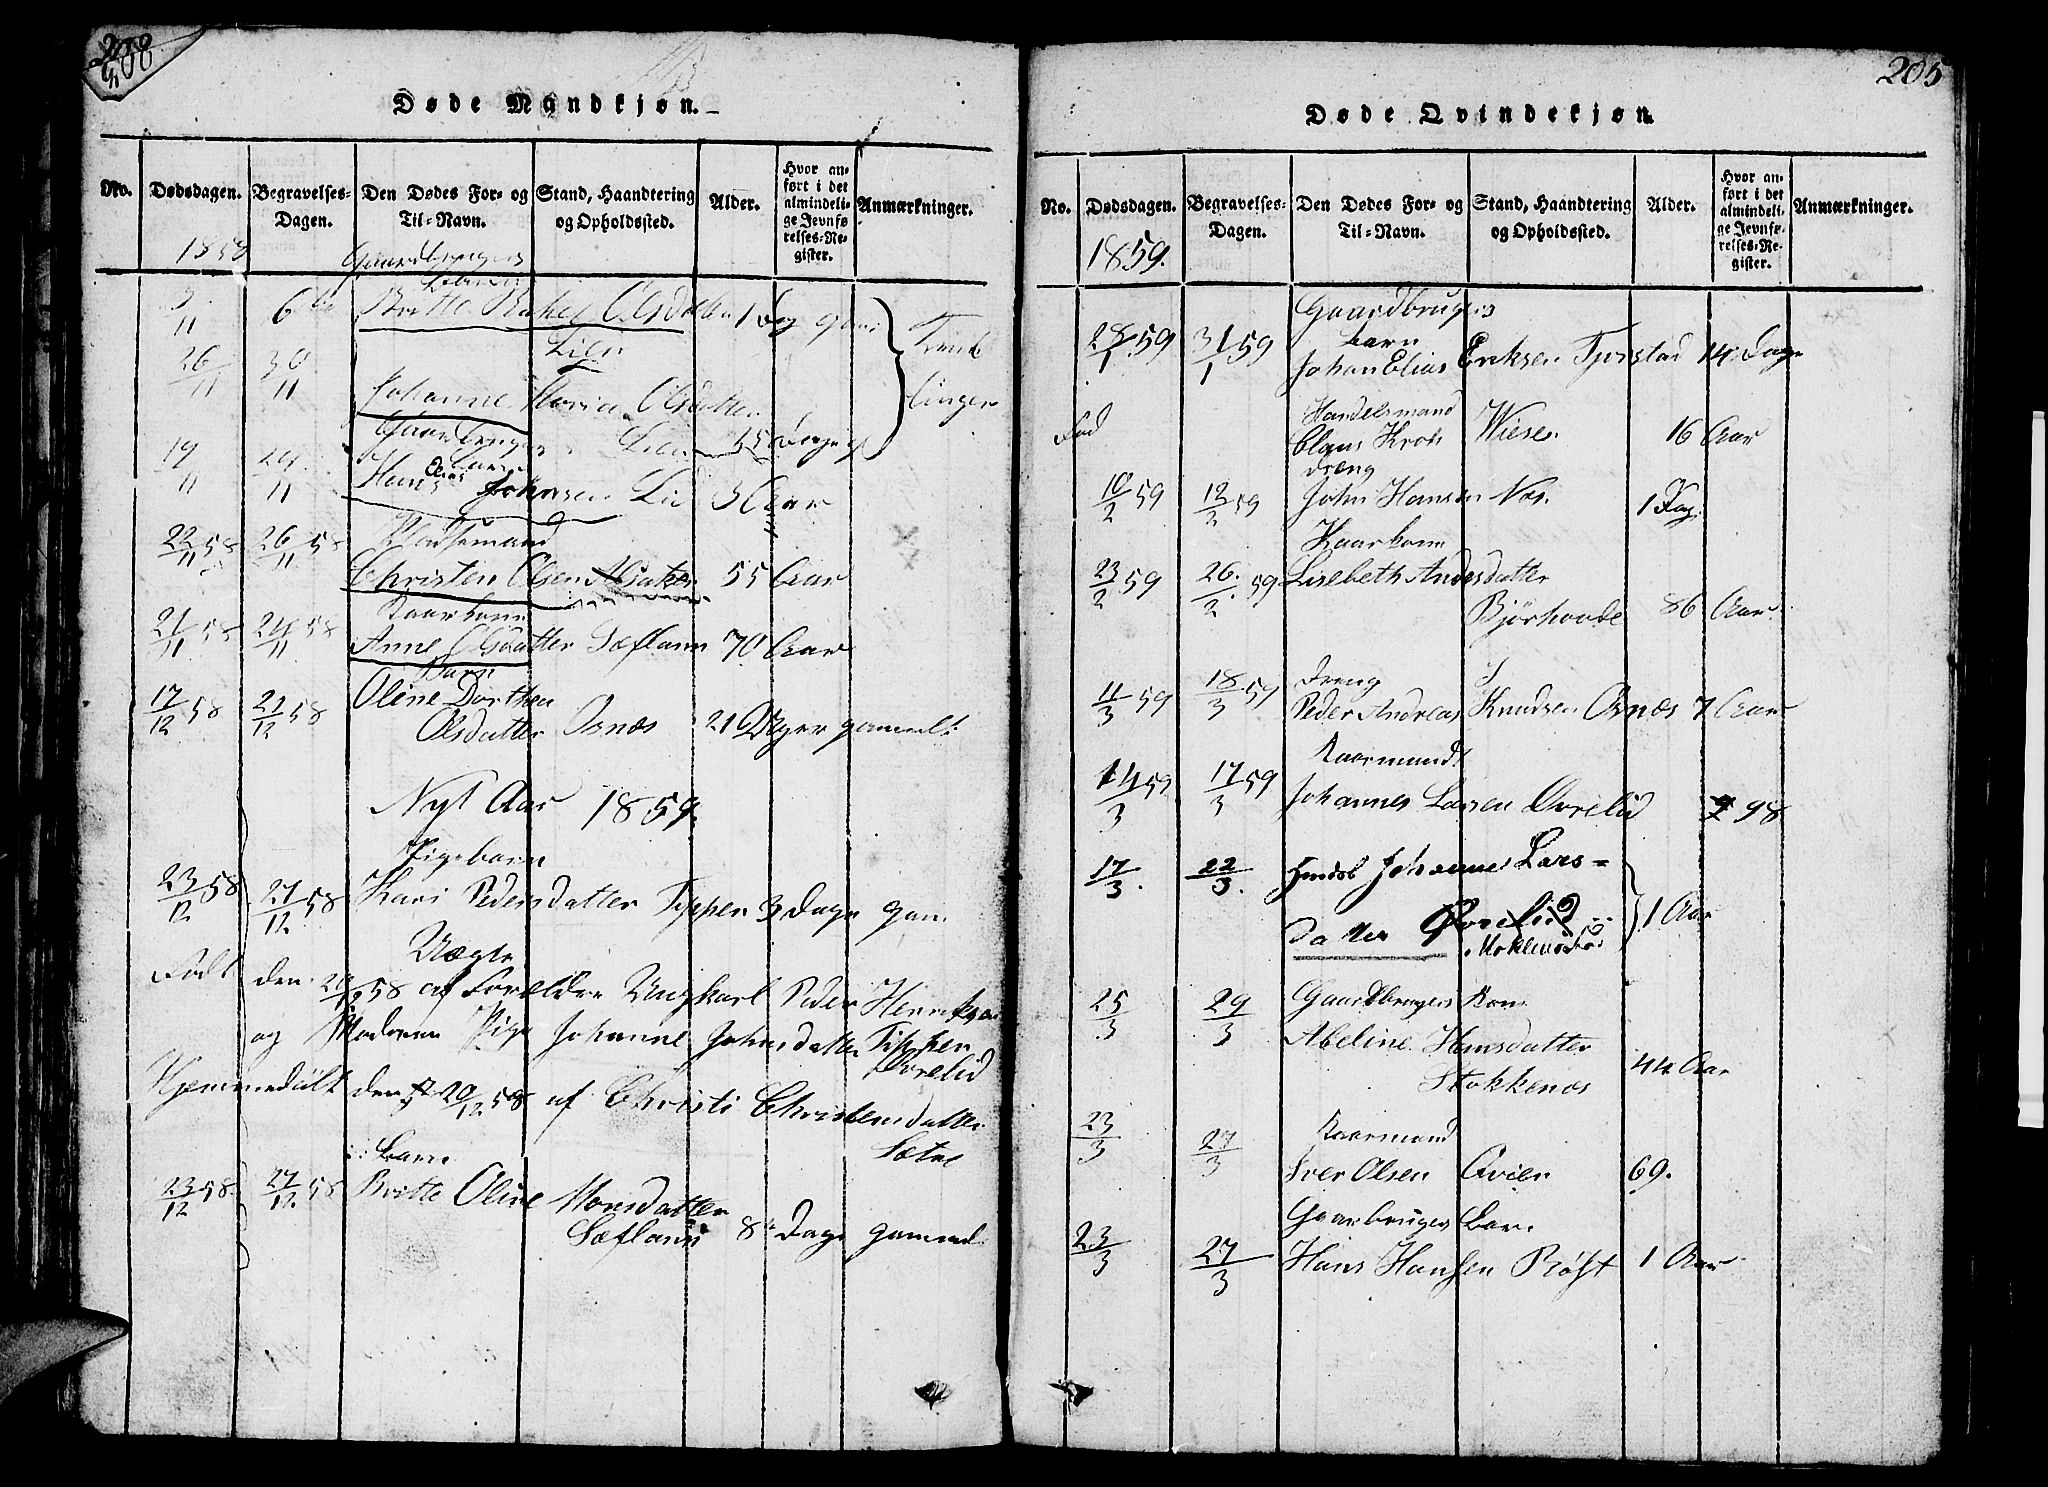 208
Døde Mandkjøn.
No.
Dødsdagen.
Begravelses-
Dagen.
Den Dødes For- og
Til-Navn.
Stand, Haandtering
og Opholdssted.
Alder.
Hvor an-
ført i det
almindeli-
ge Jevnfø
relses-Re-
gister.
Anmærkninger.
1858
Gaardbrugers
Britte Olsdatter 1 Dag
26/11 30/11 Lien
Johanne Maria Olsdatter
Lien
19/11 24/11
Hans Elias Johnsen Lie 5 Aar
22/11 58 26/11 58 Pladsemand
Christen Olsen 55 Aar
21/11 58 24/11 58 Kaarkone
Anne Olsdatter Sæfland 70 Aar
Barn
17/12 58 21/12 58 Oline Dorthea
Olsdatter Osnæs 21 Uger gammelt
Nyt Aar 1859.
Pigebarn
23/12 58 27/12 58 Kari Pedersdatter Tipper 3 Dage gam
Uægte
Født den 20/12 58 af Forældre Ungkarl Peder Henriksen
og Moderen Pige Johanne Johnsdatter Tipper
Øvrelid
Hjemmedøbt den 20/12 58 af Christi Christensdatter
Sætre
Barn
23/12 58 27/12 58 Britte Oline Monsdatter
Sæfland 8 Dage gammel
205
Døde Qvindekjøn.
No.
Dødsdagen.
Begravelses-
Dagen.
Den Dødes For- og
Til-Navn.
Stand, Haandtering
og Opholdssted.
Alder.
Hvor an-
ført i det
almindeli-
ge Jevnfø-
relses-Re-
gister.
Anmærkninger.
1859.
Gaardbrugers
Barn
28/1 59 31/1 59 Johan Elias Eriksen Tjorstad 14 Dage
Handelsmand
Claus Kroh Wiese 16 Aar
Dræng
10/2 59 12/2 59 John Hansen Nos. 1 Dag.
Kaarkone
23/2 59 26/2 59 Lisebeth Andersdatter
Bjørhovde 86 Aar
Dreng
11/3 59 18/3 59 Peder Andreas Knudsen Osnæs 7 Aar
Kaarmand
14/3 59 17/3 59 Johannes Larsen Øvrelid 98
17/3. 22/3. Johanne Lars=
datter Øvrelid 1 Aar
25/3 29/3 Gaardbrugers Kone
Abeline Hansdatter
Stokkenes 44 Aar
23/3 27/3 Kaarmand
Iver Olsen Qvien 69.
Gaarbruger Barn
23/3 27/3 Hans Hansen Røst 1 Aar